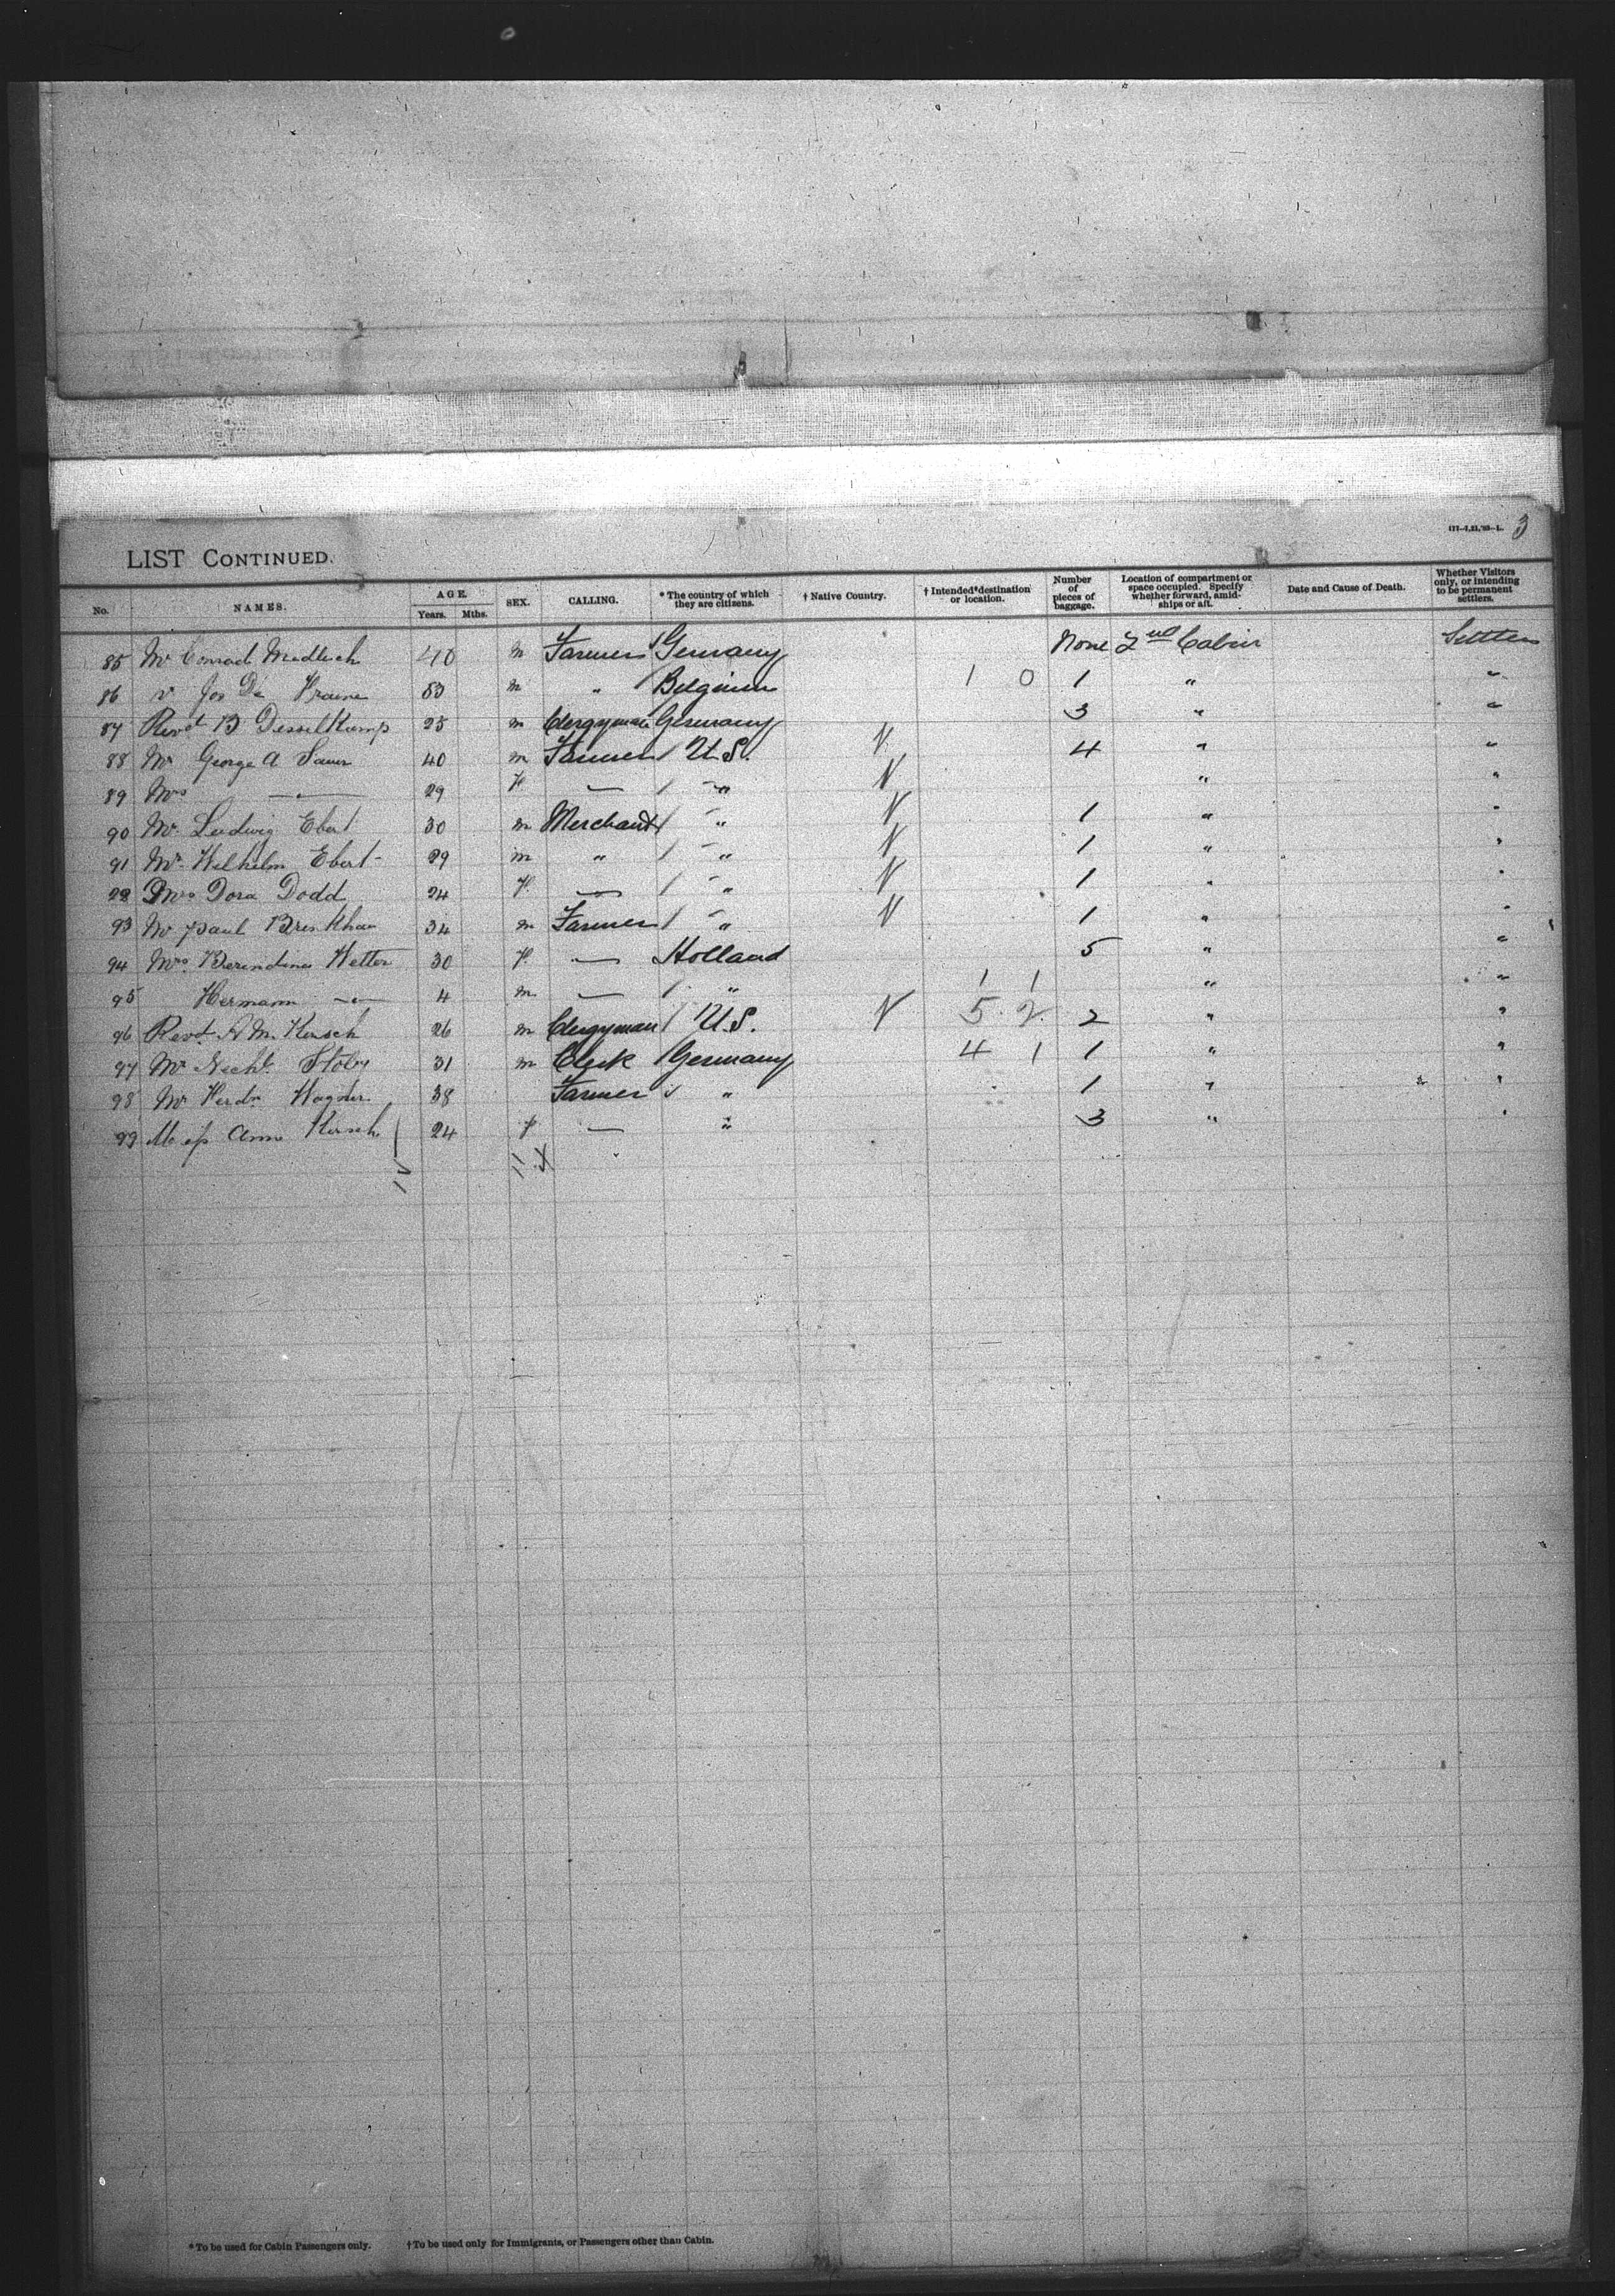 3
LIST CONTINUED.
No. NAMES. AGE. Years. Mths. SEX. CALLING. * The country of which they are citizens. † Native Country. † Intended destination or location. Number of pieces of baggage. Location of compartment or space occupied. Specify whether forward, amidships or aft. Date and Cause of Death. Whether Visitors only, or intending to be permanent settlers.
85 Mr Conrad 40 m Farmer Germany None 2nd Cabin Settlers
86 " Jos De 53 m " Belgium 1 0 1 " "
87 Revd B Desselkamp 25 m Clergyman Germany 3 " "
88 Mr George A Sauer 40 m Farmer U.S. 4 " "
89 Mrs — " — 29 f — " " "
90 Mr Ludwig Ebert 30 m Merchant " 1 " "
91 Mr Wilhelm Ebert 29 m " " 1 " "
92 Mrs Dora Dodd 24 f — " 1 " "
93 Mr Paul 34 m Farmer " 1 " "
94 Mrs Berendina Wetter 30 f — Holland 5 " "
95 Hermann — " — 4 m — " 1 1 " "
96 Revd A M Kirsch 26 m Clergyman U.S. 5 2 2 " "
97 Mr 31 m Clerk Germany 4 1 1 " "
98 Mr Ferdn Wagner 38 Farmer " 1 " "
99 Miss Anna Kirsch 24 f — " 3 " "
* To be used for Cabin Passengers only. † To be used only for Immigrants, or Passengers other than Cabin.